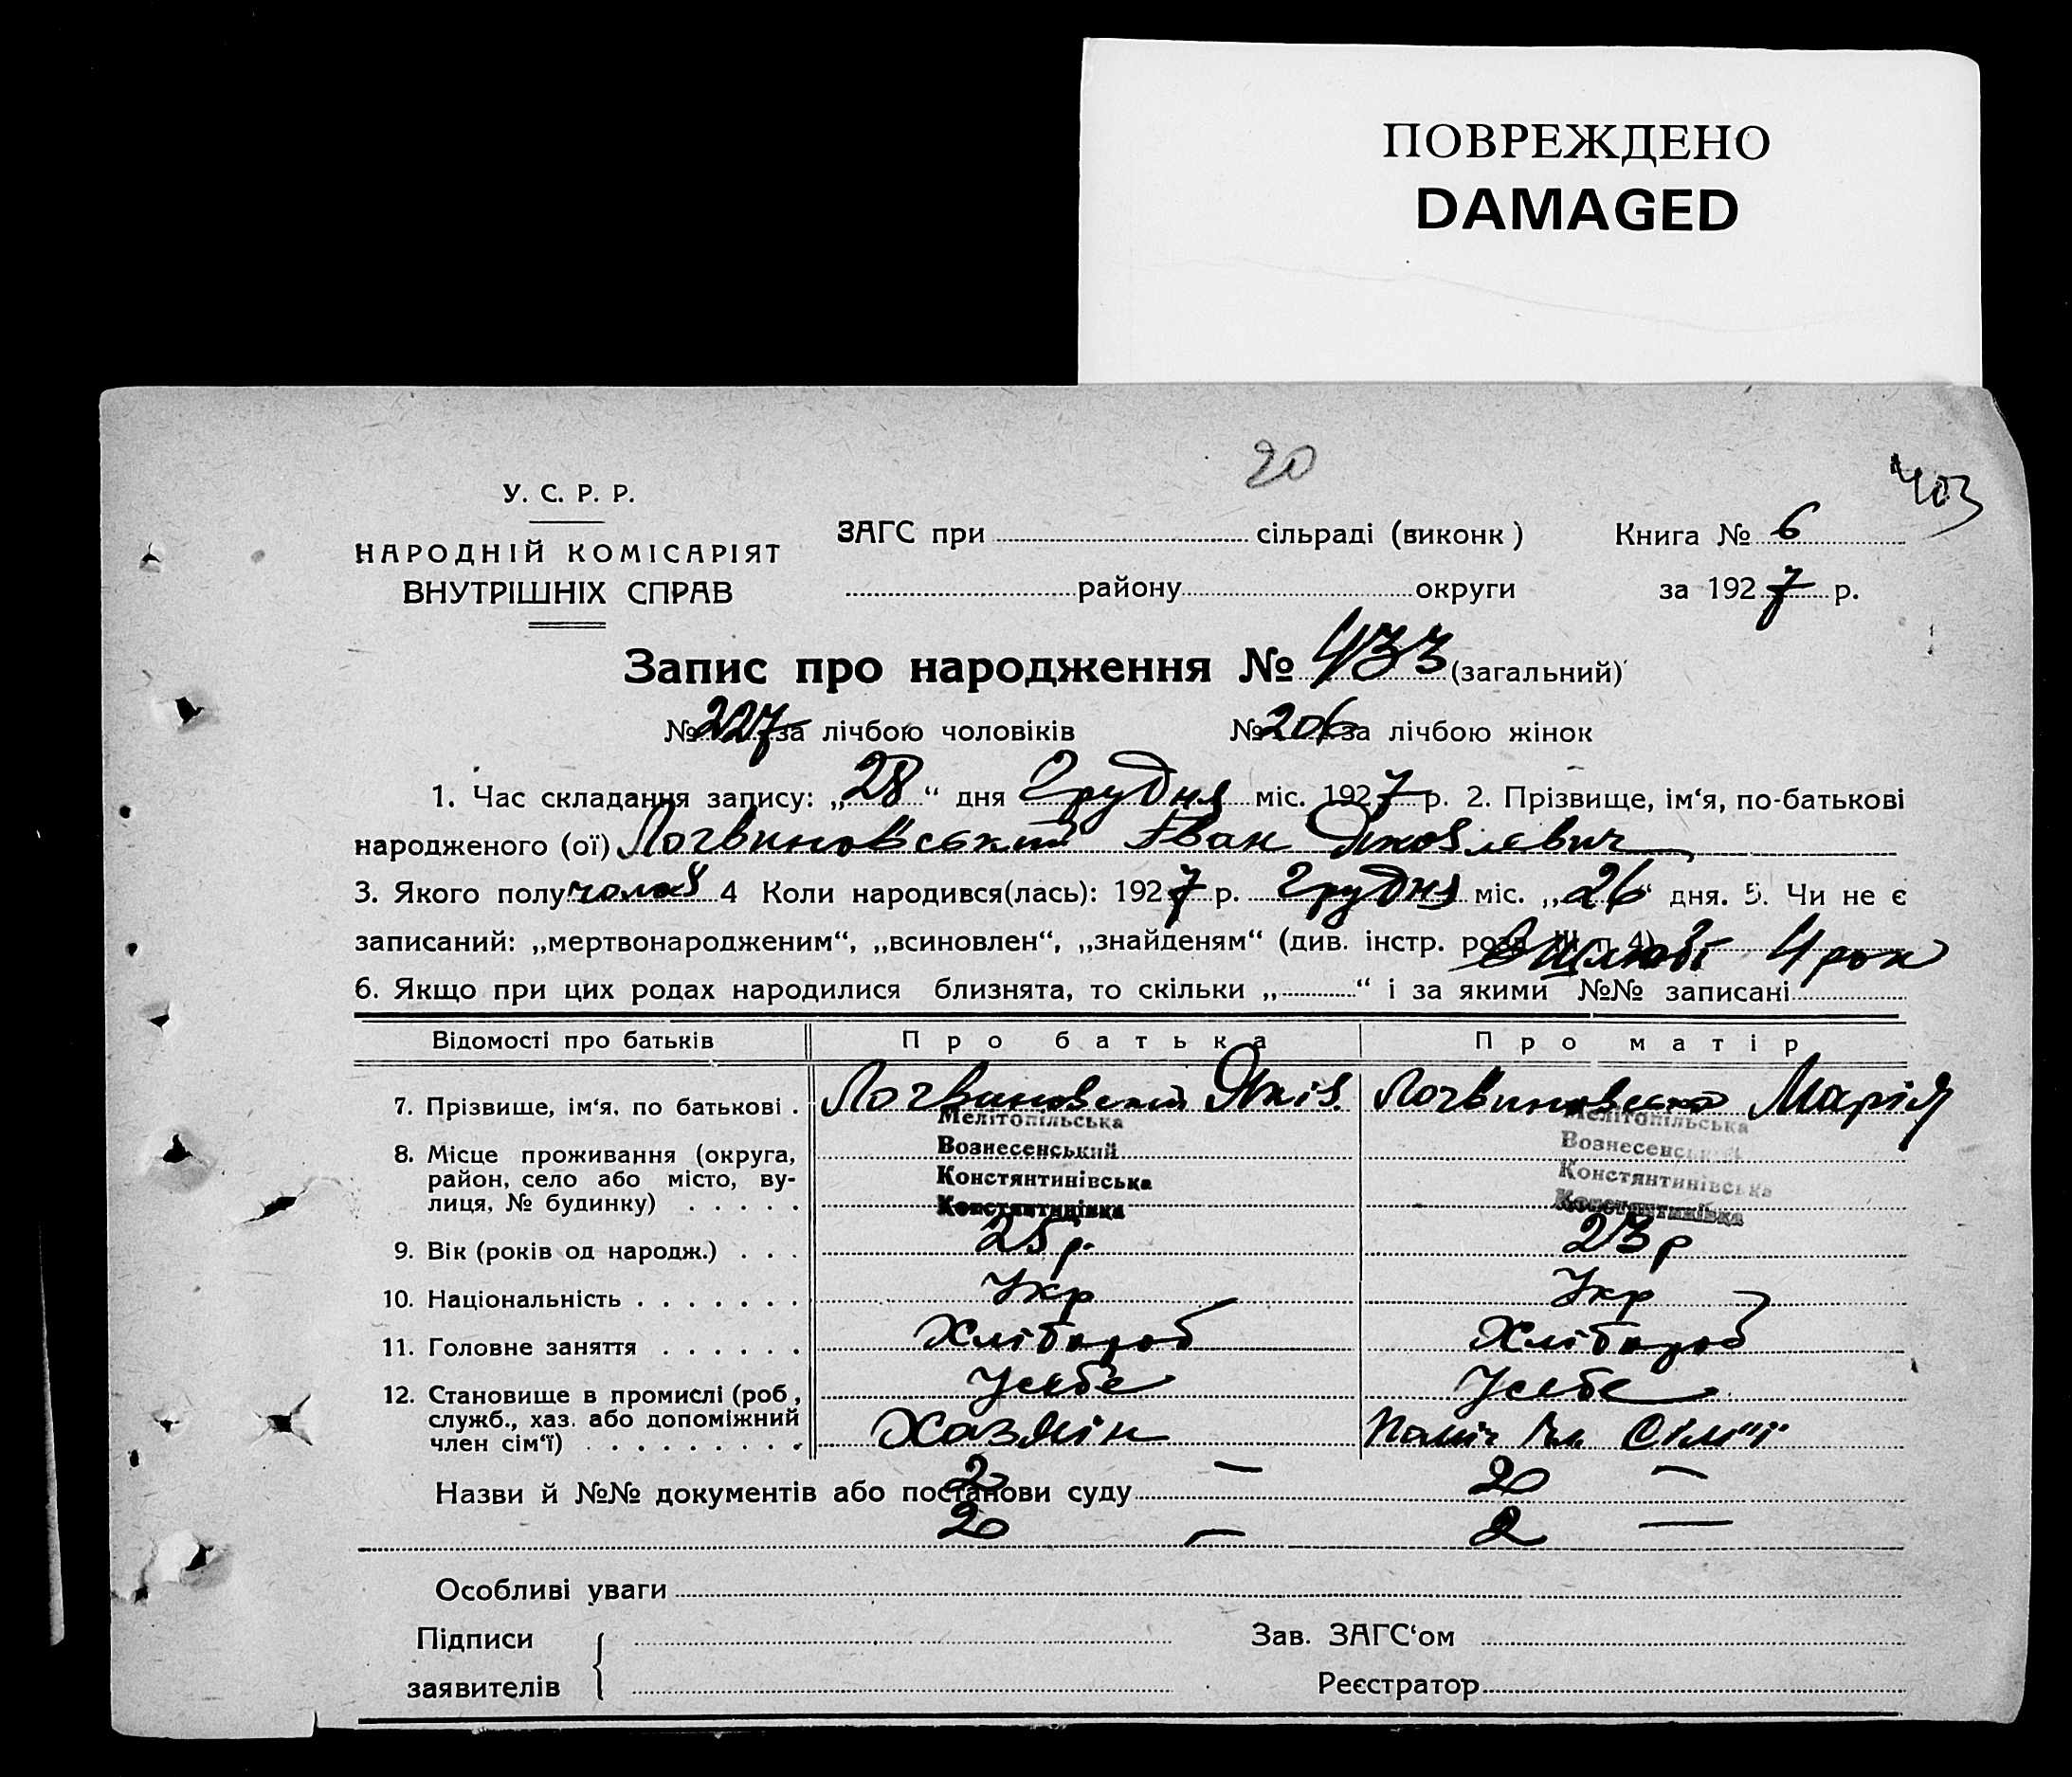 ПОВРЕЖДЕНО
DAMAGED
20
403
У. С. Р. Р.
НАРОДНІЙ КОМІСАРІЯТ
ВНУТРІШНІХ СПРАВ
ЗАГС при сільраді (виконк)
району округи
Книга № 6
за 1927 р.
Запис про народження № 433 (загальний)
№ 227 за лічбою чоловіків № 206 за лічбою жінок
1. Час складання запису: „28“ дня Грудня міс. 1927 р. 2. Прізвище, ім‘я, по-батькові
народженого (ої) Логвиновський Іван Яковлевич
3. Якого полу чолов 4 Коли народився(лась): 1927 р. Грудня міс. „26“ дня. 5. Чи не є
записаний: „мертвонародженим“, „всиновлен“, „знайденям“ (див. інстр. розд. III п 4) В Шлюбі 4 рок
6. Якщо при цих родах народилися близнята, то скільки „ “ і за якими №№ записані
Відомості про батьків Про батька Про матір
7. Прізвище, ім‘я, по батькові . Логвиновський Яків. Логвиновська Марія
8. Місце проживання (округа, район, село або місто, вулиця, № будинку) . . . . .
Мелітопільська Мелітопільська
Вознесенський Вознесенський
Констянтинівська Констянтинівська
Констянтинівка Констянтинівка
9. Вік (років од народж.) . . . 25 р. 23 р
10. Національність . . . . . . . Укр Укр
11. Головне заняття . . . . . . Хлібороб Хлібороб
12. Становище в промислі (роб, Усебе Усебе
служб., хаз. або допоміжний
член сім‘ї) . . . . . . . . . Хазяїн Поміч чл. Сім"ї
2 — 20 —
Назви й №№ документів або постанови суду
20 — 2 —
Особливі уваги
Підписи
заявителів
Зав. ЗАГС‘ом
Реєстратор